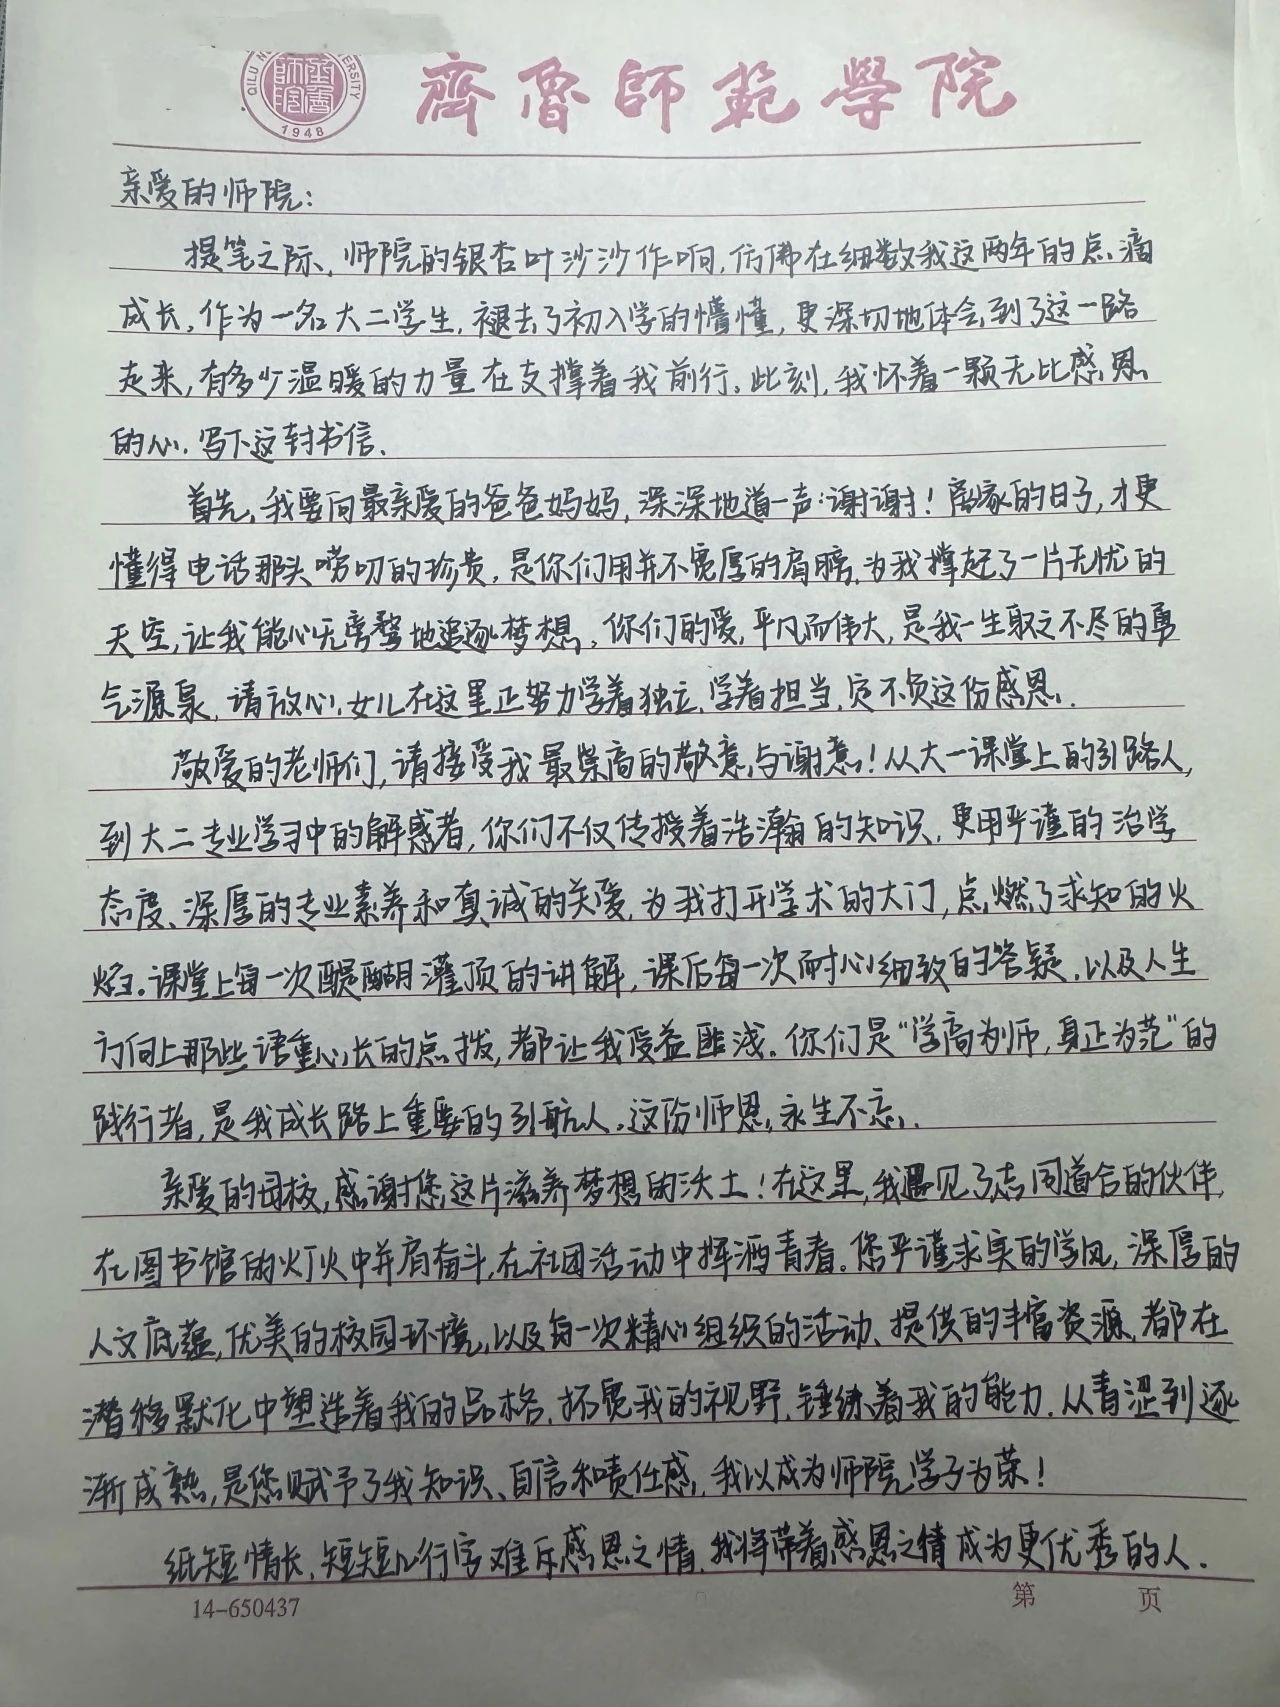 QILU N ERSITY
師齊院魯
1948
齊魯師範學院
亲爱的师院:
提笔之际、师院的银杏叶沙沙作响,仿佛在细数我这两年的点滴
成长,作为一名大二学生,褪去了初入学的懵懂,更深切地体会到了这一路
走来,有多少温暖的力量在支撑着我前行。此刻,我怀着一颗无比感恩
的心.写下这封书信.
首先,我要向最亲爱的爸爸妈妈,深深地道一声:谢谢!离家的日子,才更
懂得电话那头唠叨的珍贵,是你们用并不宽厚的肩膀.为我撑起了一片无忧的
天空,让我能心无旁骛地追逐梦想,你们的爱,平凡而伟大,是我一生取之不尽的勇
气源泉,请放心,女儿在这里正努力学着独立,学着担当,定不负这份感恩.
敬爱的老师们,请接受我最崇高的敬意与谢意!从大一课堂上的引路人,
到大二专业学习中的解惑者,你们不仅传授着浩瀚的知识,更用严谨的治学
态度、深厚的专业素养和真诚的关爱,为我打开学术的大门,点燃了求知的火
焰。课堂上每一次醍醐灌顶的讲解,课后每一次耐心细致的答疑,以及人生
方向上那些语重心长的点拨,都让我受益匪浅。你们是“学高为师,身正为范”的
践行者,是我成长路上重要的引航人。这份师恩,永生不忘.
亲爱的母校,感谢您这片滋养梦想的沃土!在这里,我遇见了志同道合的伙伴,
在图书馆的灯火中并肩奋斗,在社团活动中挥洒青春。您严谨求实的学风,深厚的
人文底蕴,优美的校园环境,以及每一次精心组织的活动、提供的丰富资源,都在
潜移默化中塑造着我的品格,拓宽我的视野,锤练着我的能力.从青涩到逐
渐成熟,是您赋予了我知识、自信和责任感,我以成为师院学子为荣!
纸短情长,短短几行字难斥感恩之情,我将带着感恩之情成为更优秀的人.
14-650437
第 页